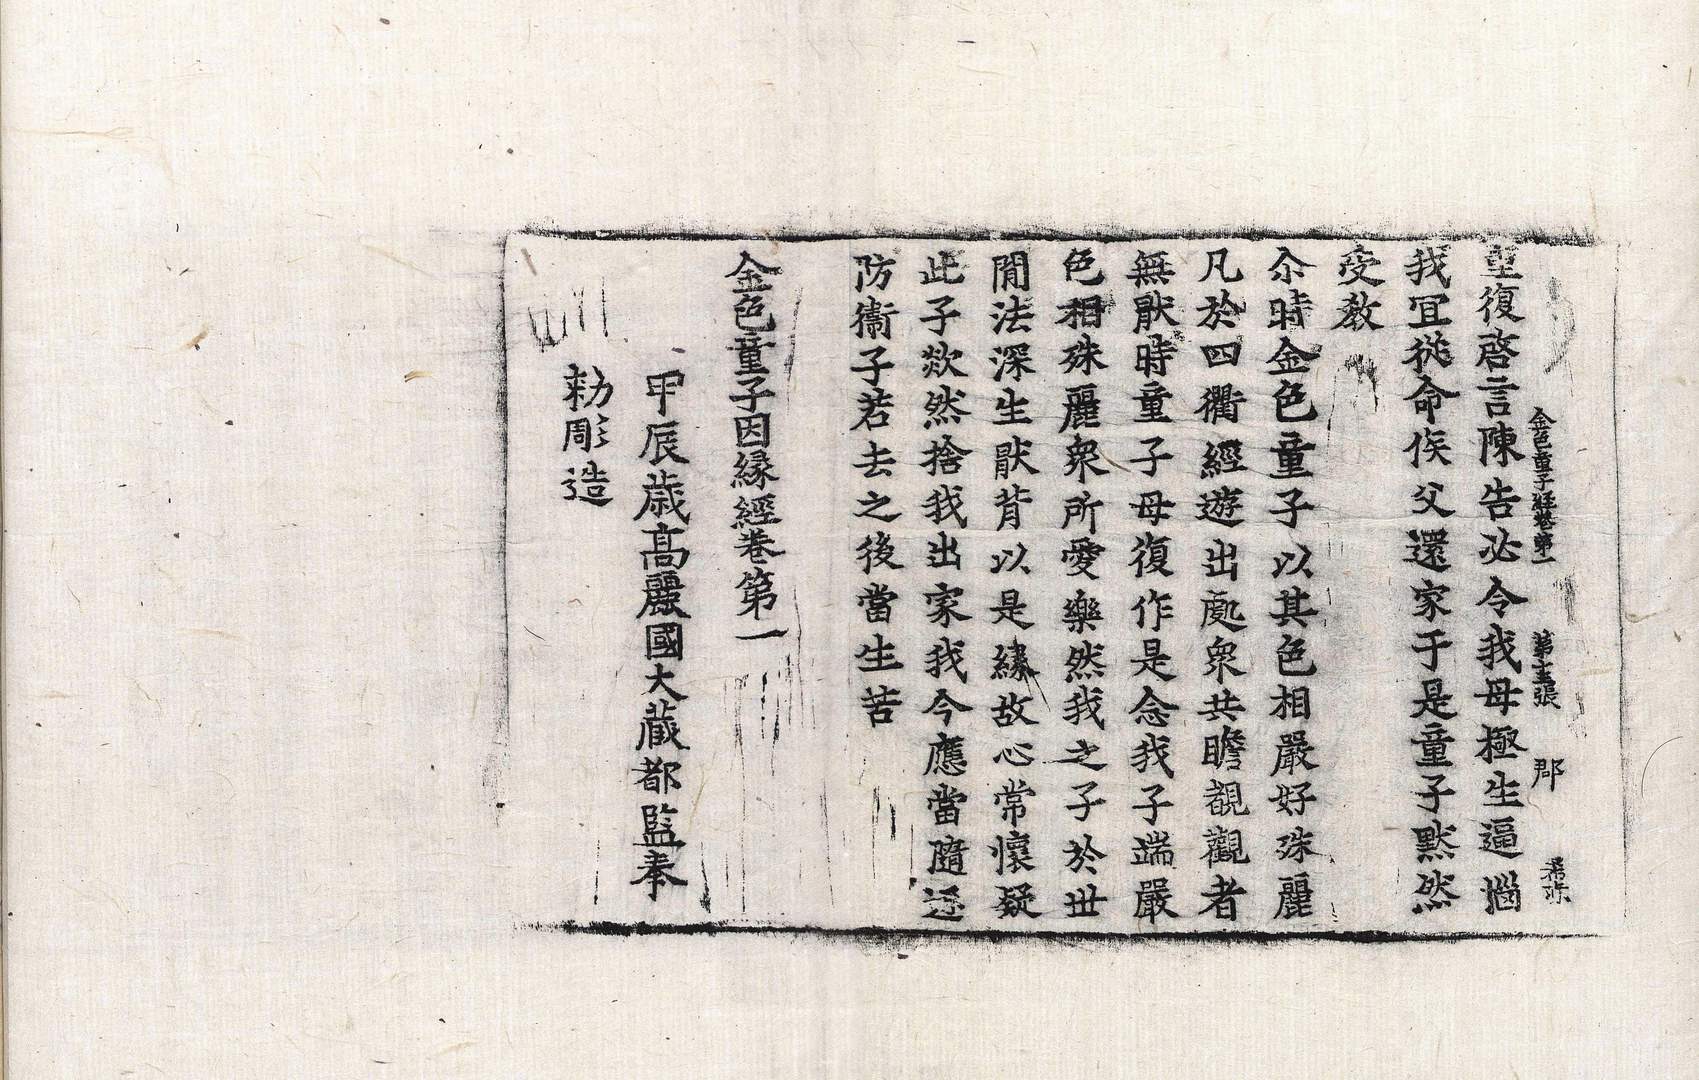 金色童子經卷第一 第十五張 郡
重復啓言陳告必令我母極生逼惱
我宜從命俟父還家于是童子默然
受教
尒時金色童子以其色相嚴好殊麗
凡於四衢經遊出處衆共瞻覩觀者
無猒時童子母復作是念我子端嚴
色相殊麗衆所愛樂然我之子於世
間法深生猒背以是緣故心常懷疑
此子欻然捨我出家我今應當隨逐
防衛子若去之後當生苦
金色童子因緣經卷第一
甲辰歲高麗國大藏都監奉
勅彫造